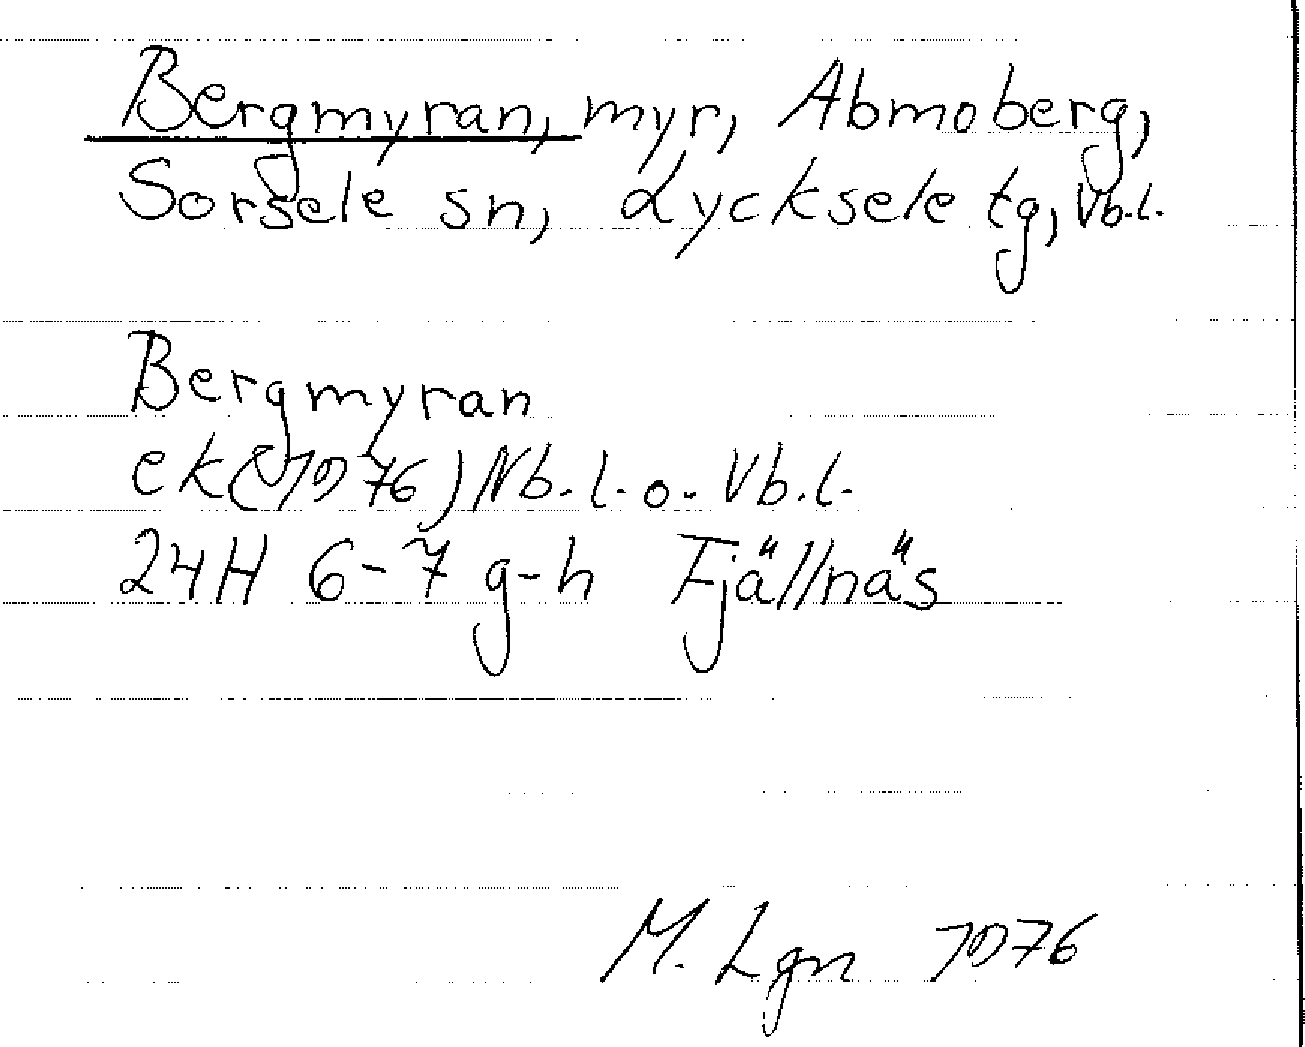 Bergmyran, myr, Abmoberg,
Sorsele sn, Lycksele tg, Vb.l.
Bergmyran
ek(1976) Nb.l.o. Vb.l.
24H 6-7 g-h Fjällnäs
M. Lgn 1976